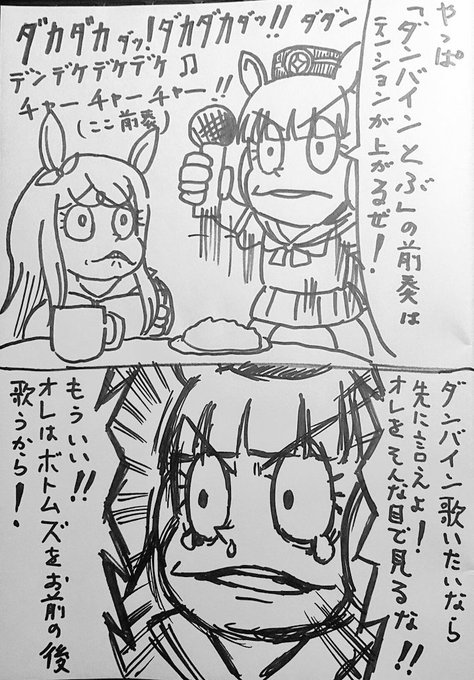 やっぱ
「ダンバインとぶ」の前奏は
テンションが上がるぜ!
ダカダカダッ!ダカダカダッ!!ダダン
デンデケデケデケ♫
チャーチャーチャー!!
(ここ前奏)
ダンバイン歌いたいなら
先に言えよ!
オレをそんな目で見るな!!
もういい!!
オレはボトムズをお前の後
歌うから!